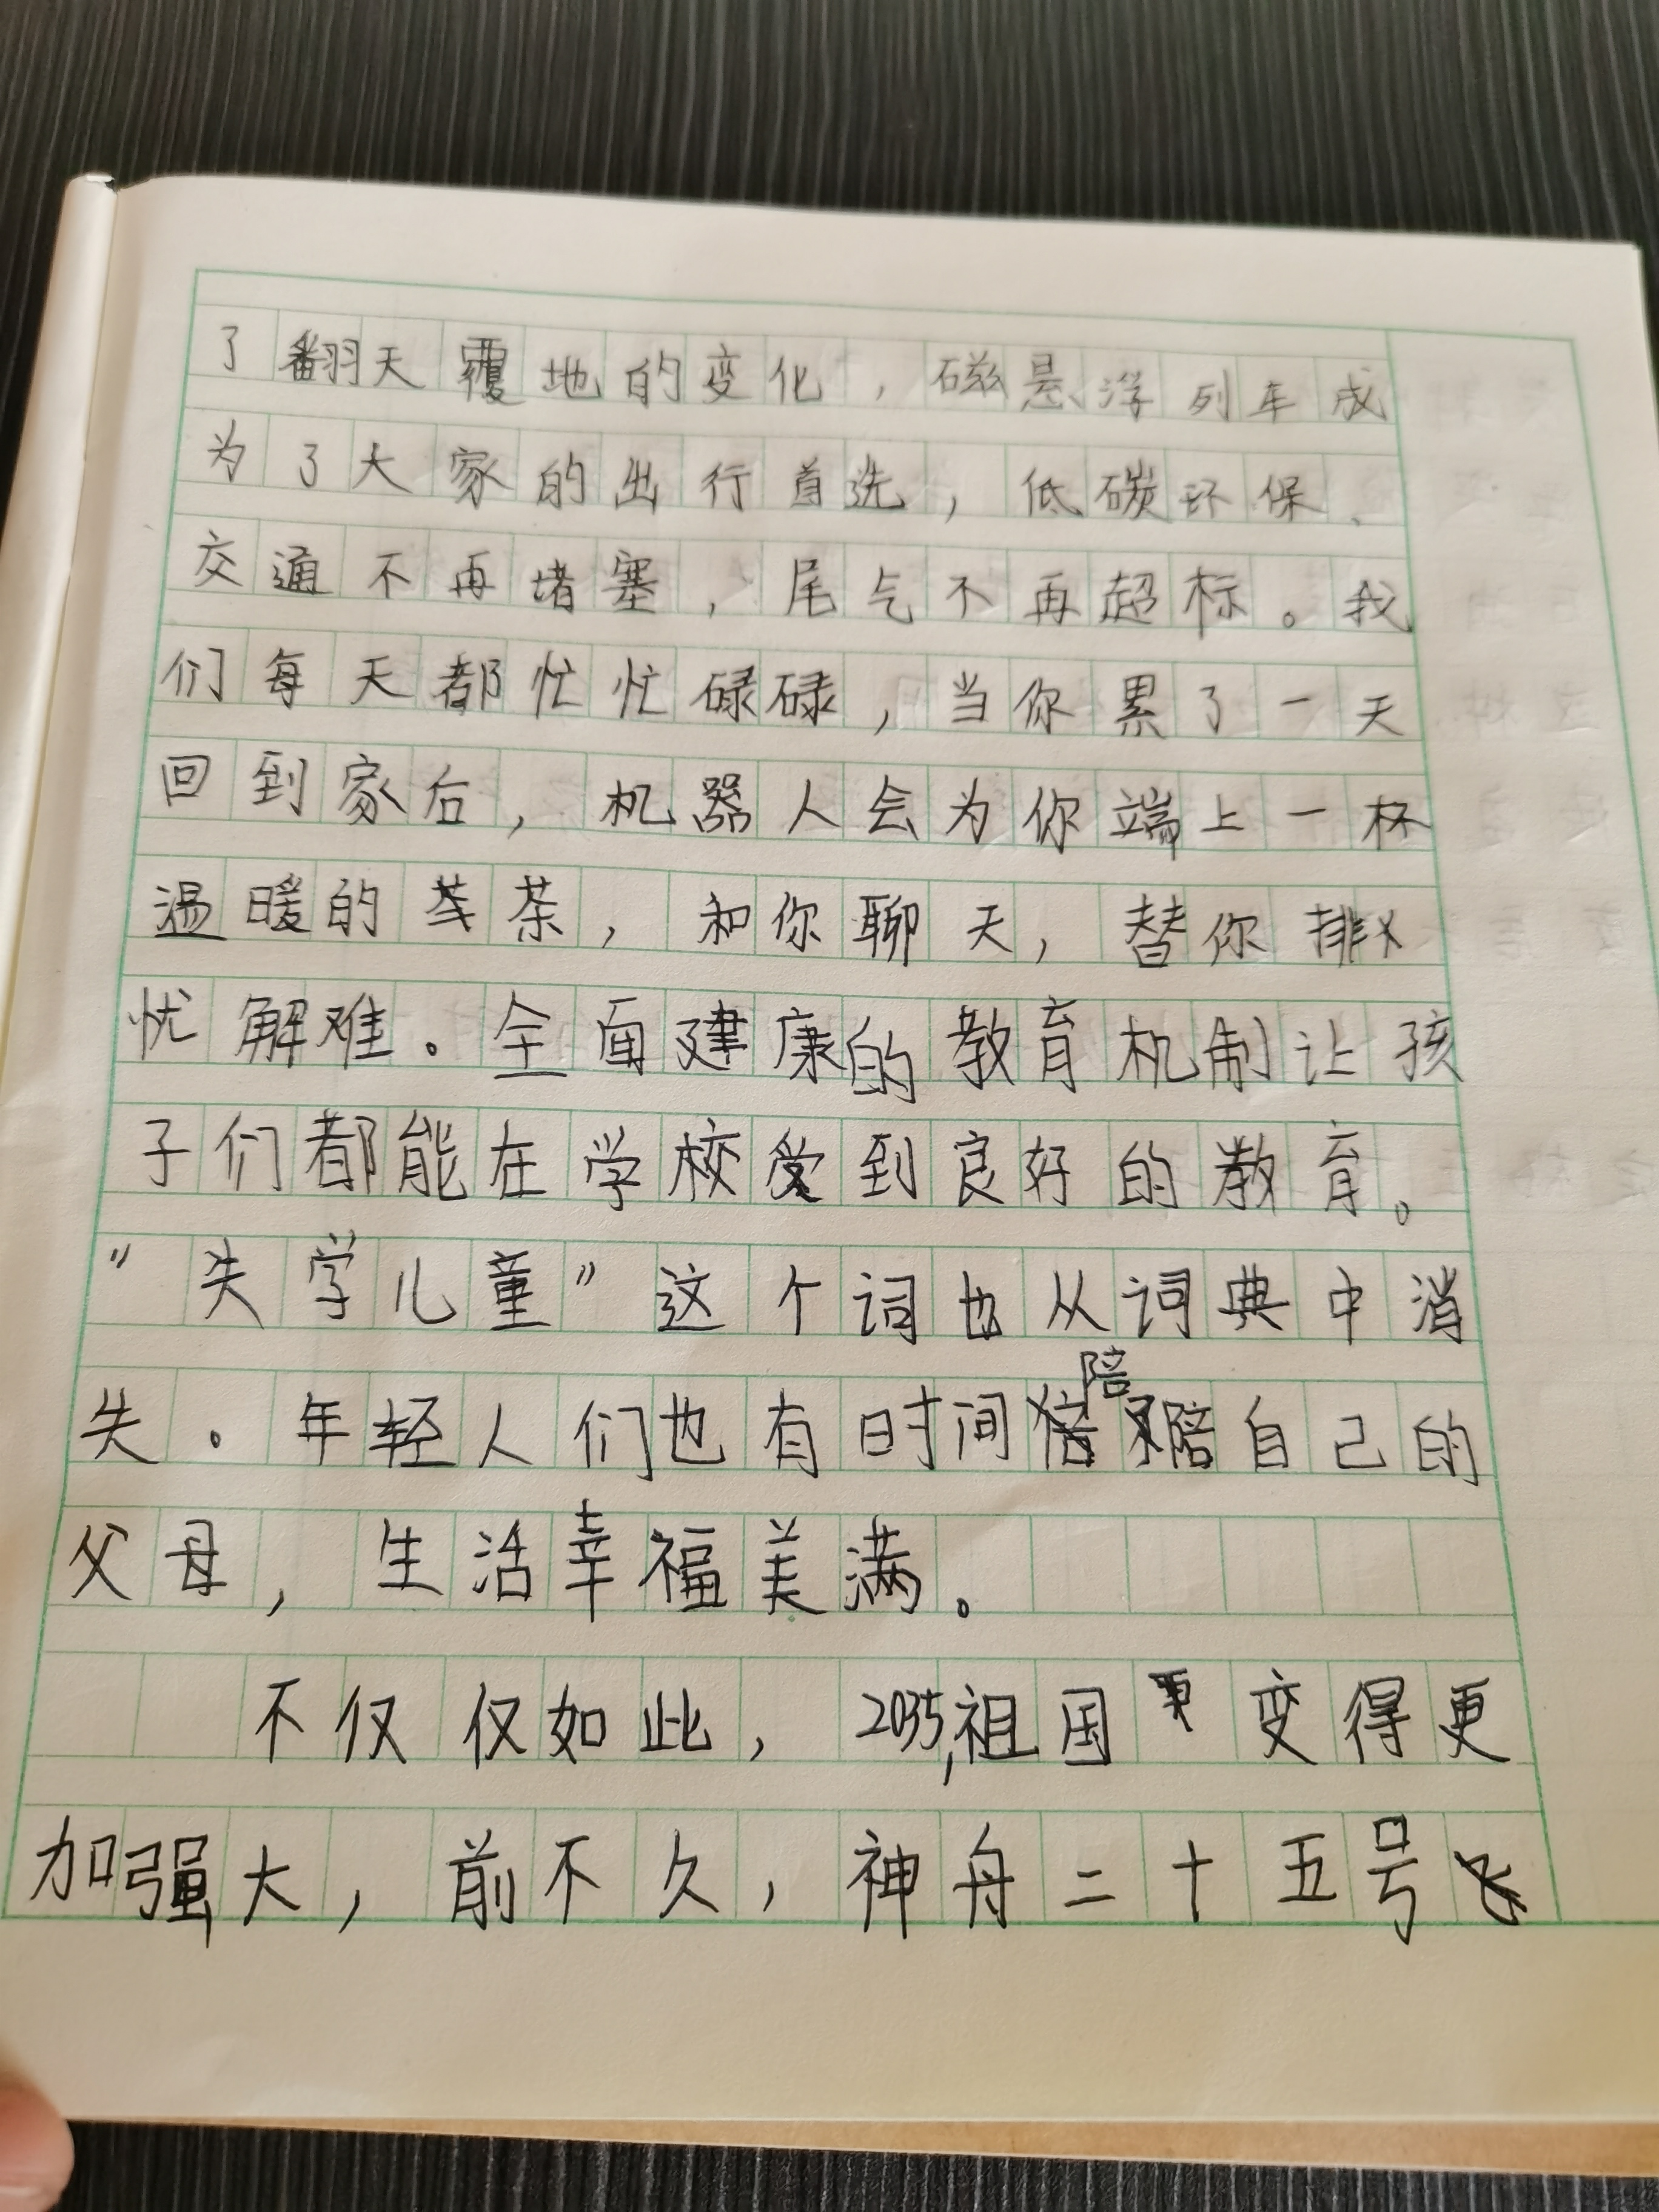 了翻天覆地的变化，磁悬浮列车成
为了大家的出行首选，低碳环保、
交通不再堵塞，尾气不再超标。我
们每天都忙忙碌碌，当你累了一天
回到家后，机器人会为你端上一杯
温暖的茶，和你聊天，替你排
忧解难。全面建康的教育机制让孩
子们都能在学校受到良好的教育。
"失学儿童"这个词也从词典中消
失。年轻人们也有时间陪陪自己的
父母，生活幸福美满。
不仅仅如此，2035,祖国变得更
加强大，前不久，神舟二十五号飞